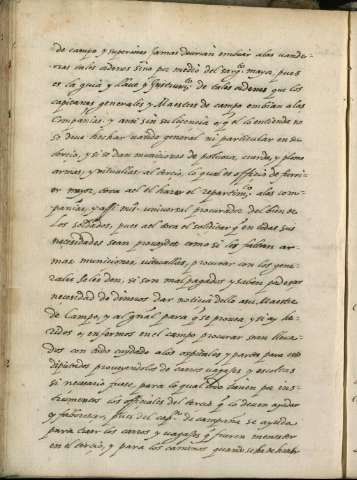 de campo y superiores jamas devrian embiar a las vande-
ras tales ordenes sino por medio del sargto mayor, pues
es la guia y llave y Instrumto de tales ordenes que los
capitanes generales y Maestre de campo embian a las
Compañias. y ansi sin su licencia o q el lo entienda no
se deve hechar vando general ni particular en su
tercio, y si se dan municiones de polvora, cuerda, y plomo
armas, y vituallas al tercio, lo qual es officio de furriel
mayor, toca a el el hazer el repartimto a las com-
pañias, y assi mismo universal procurador del bien de
los soldados, pues a el toca el solicitar q en todas sus
necesidades sean proveydos como si les faltan ar-
mas municiones vituvallas, procurar con los gene-
rales se les den, si son mal pagados y saben padeçer
necesidad de dineros dar noticia dello a su Maestre
de Campo, y al gnal para q se provea, y si ay he-
ridos o enfermos en el campo procurar sean lleva-
dos con todo cuydado a los ospitales y partes para ello
diputados proveyendolos de carros vagajes y escoltas
si necesario fuere, para lo qual tiene por ins-
trumentos los officiales del tercio q lo deven ayudar
y faborecer, pues del capn de campaña se ayuda
para traer los carros y vagajes q fueren menester
en el tercio, y para los caminos quando se ha de hazer